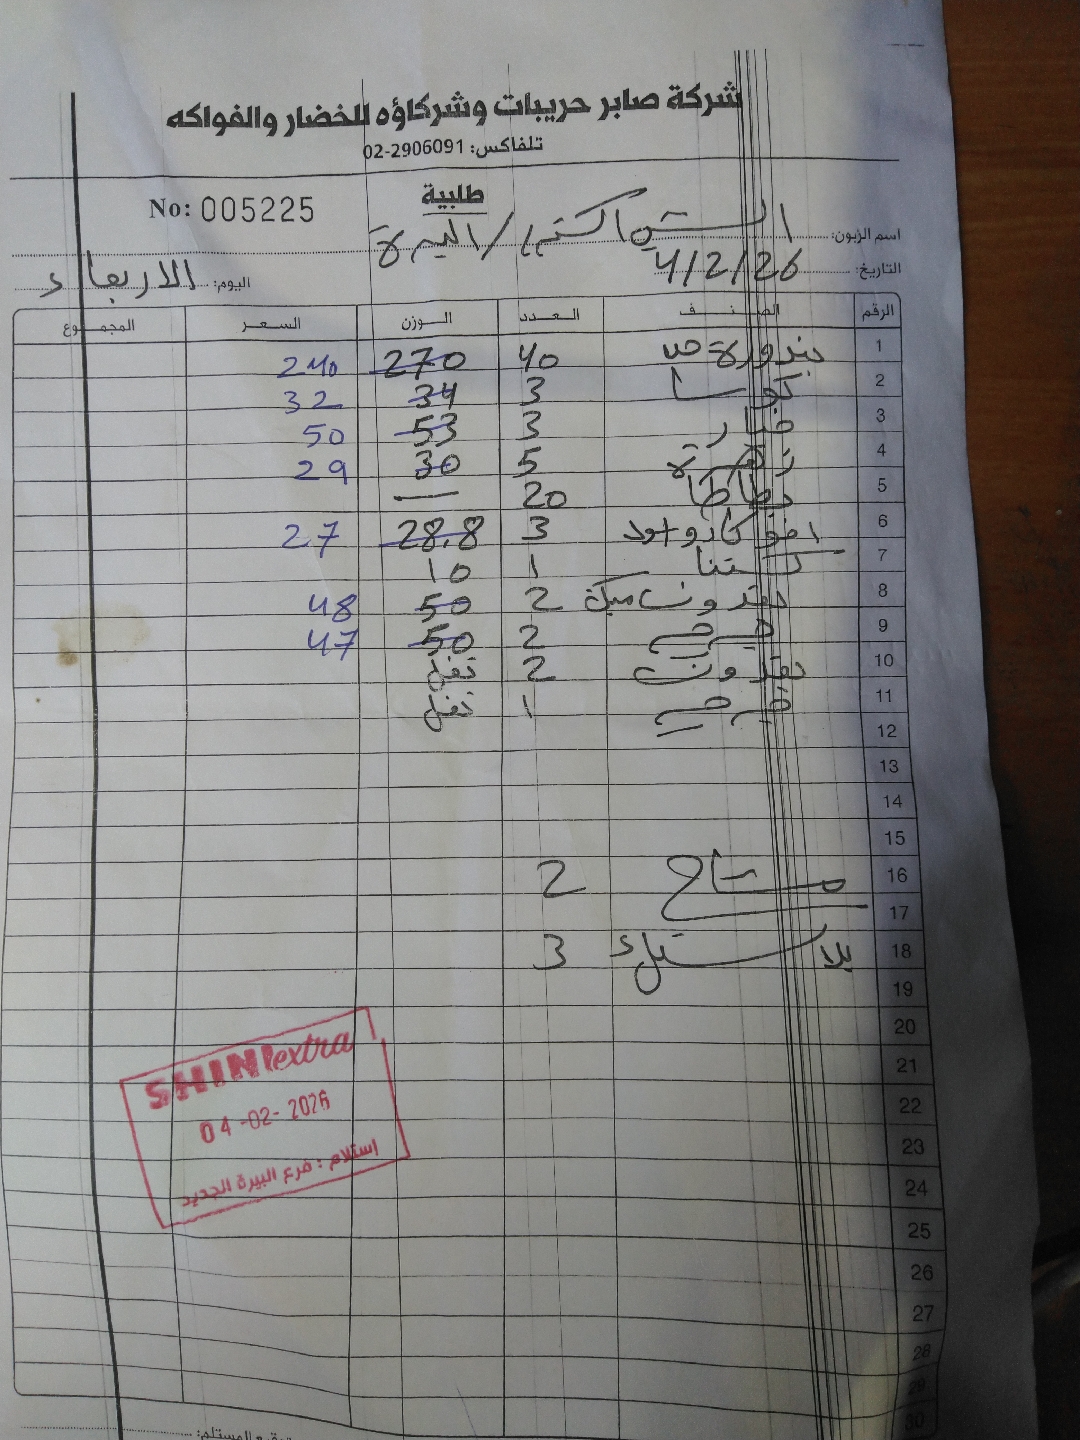 شركة صابر حريبات وشركاؤه للخضار والفواكه
تلفاكس: 02-2906091
طلبية
No: 005225
اسم الزبون: الشني اكسترا / البيرة
التاريخ: 4/2/26
اليوم: الاربعاء
الرقم الصنف العدد الوزن السعر المجموع
1 بندورة 40 270 240
2 كوسا 3 34 32
3 خيار 3 53 50
4 زهرة 5 30 29
5 بطاطا 20 —
6 افوكادو 3 28.8 27
7 كستنا 1 10
8 بقدونس 2 50 48
9 جرجير 2 50 47
10 بقدونس 2
11 جرجير 1
12
13
14
15
16 مشتاح 2
17
18 بلاستيك 3
19
20
21
22
23
24
25
26
27
28
29
30
SHINI extra
04-02-2026
استلام: فرع البيرة الجديد
توقيع المستلم: